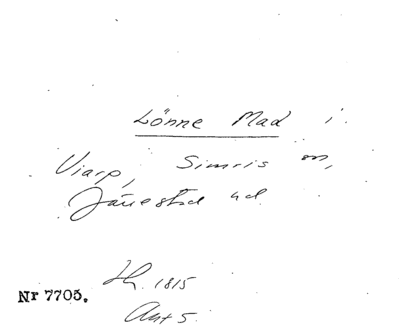 Lönne Mad i
Viarp, Simris sn,
Järrestad hd
Hh. 1815
Nr 7705.
Akt 5.